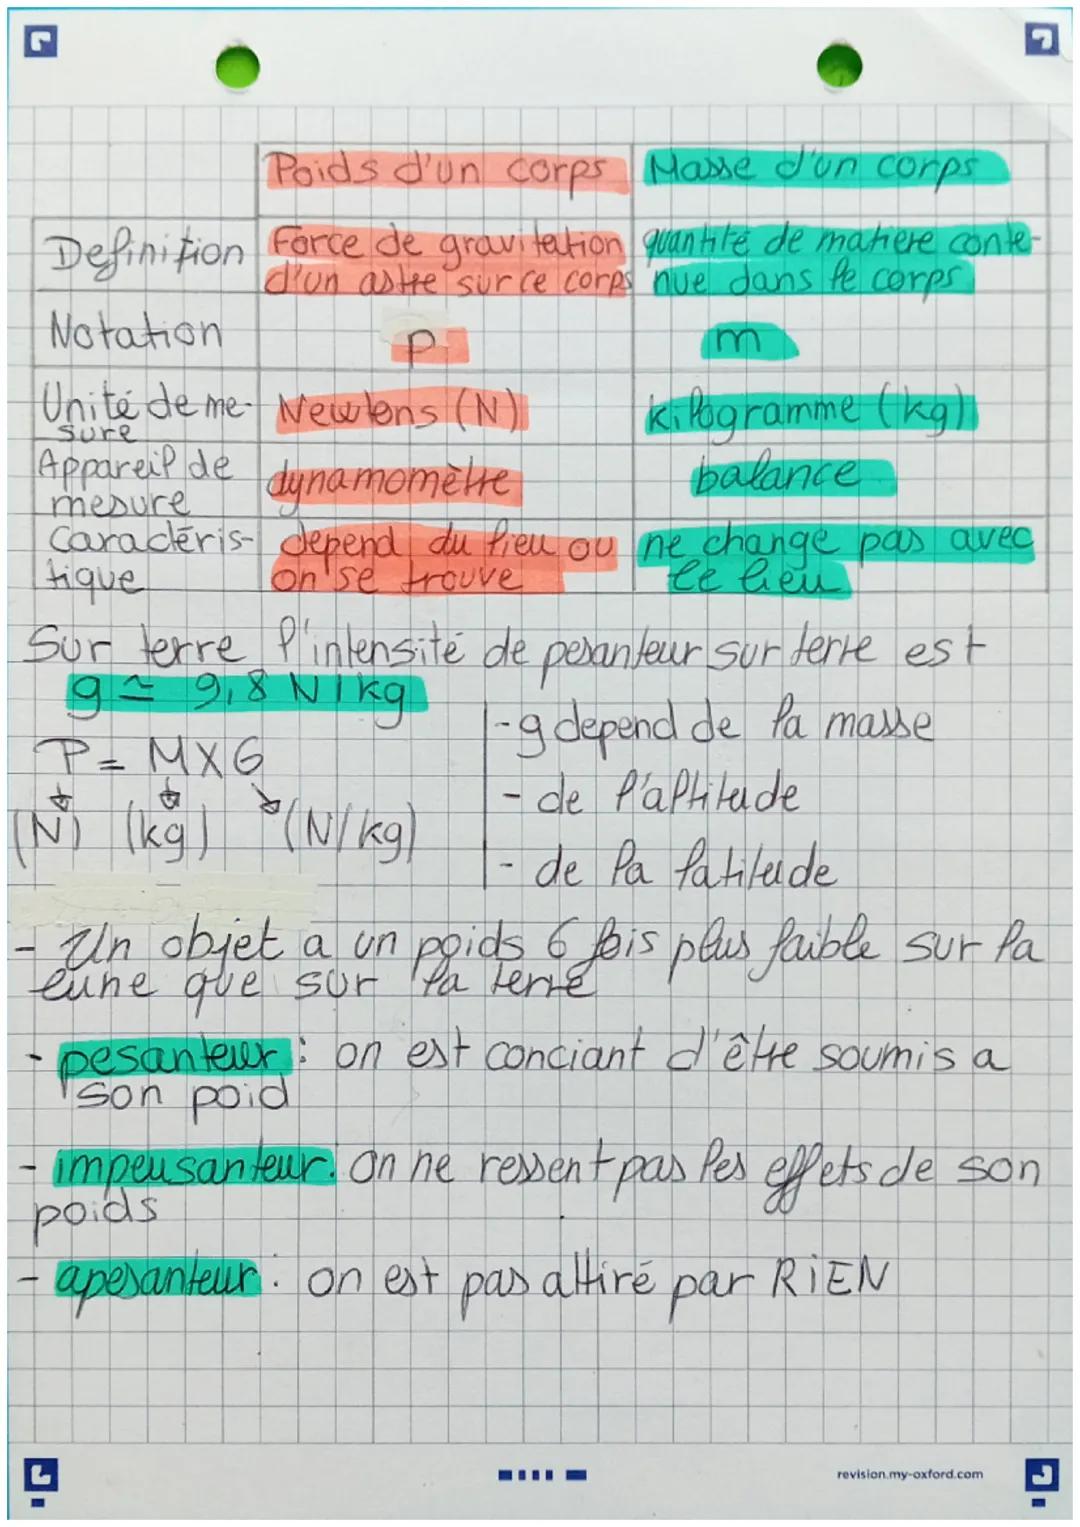 Poids d'un corps Masse d'un corps
Definition Force de gravitation quantité de matiere conte-
d'un astre sur ce corps nue dans le corps
Notation p m
Unité de me- Newtons (N) kilogramme (kg)
sure
Appareil de dynamomètre balance
mesure
Caractéris- depend du lieu ou ne change pas avec
tique on se trouve le lieu
Sur terre l'intensité de pesanteur sur terre est
g ≃ 9,8 N/kg
P = M X G
(N) (kg) (N/kg)
- g depend de la masse
- de l'altitude
- de la latitude
- Un objet a un poids 6 fois plus faible sur la
lune que sur la terre
- pesanteur : on est conciant d'être soumis a
son poid
- impeusanteur : on ne ressent pas les effets de son
poids
- apesanteur : on est pas attiré par RiEN
revision.my-oxford.com